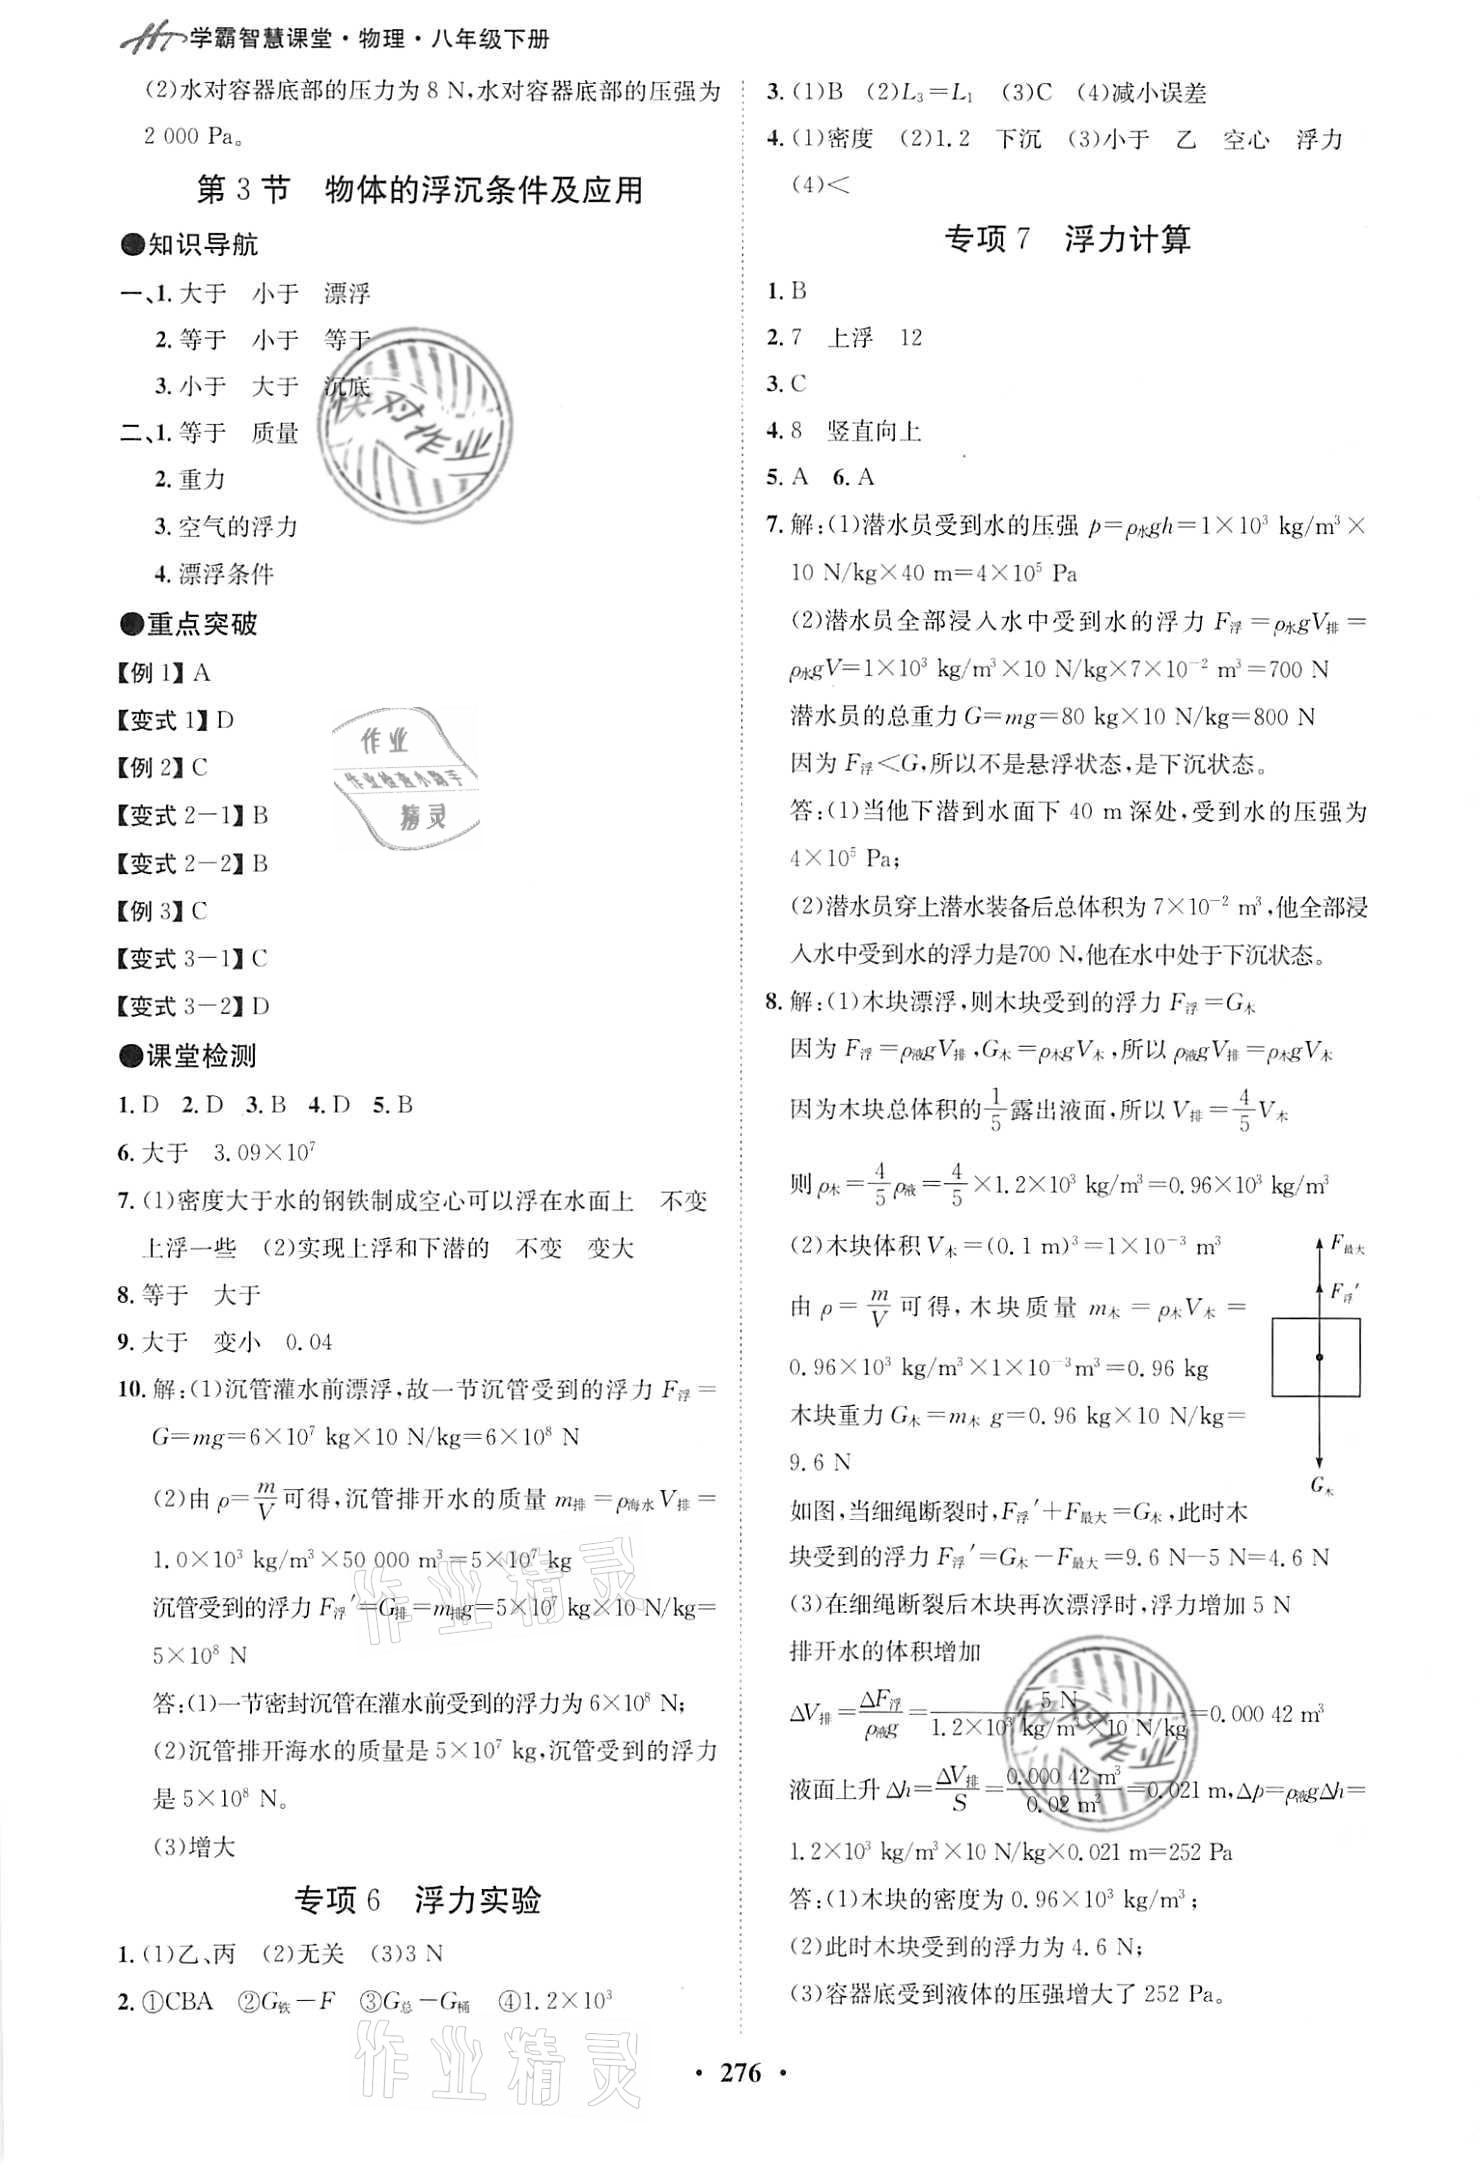 学霸智慧课堂·物理·八年级下册
(2)水对容器底部的压力为 8 N,水对容器底部的压强为
2 000 Pa。
第 3 节　物体的浮沉条件及应用
●知识导航
一、1. 大于　小于　漂浮
2. 等于　小于　等于
3. 小于　大于　沉底
二、1. 等于　质量
2. 重力
3. 空气的浮力
4. 漂浮条件
●重点突破
【例 1】A
【变式 1】D
【例 2】C
【变式 2－1】B
【变式 2－2】B
【例 3】C
【变式 3－1】C
【变式 3－2】D
●课堂检测
1. D　2. D　3. B　4. D　5. B
6. 大于　3.09×10⁷
7. (1)密度大于水的钢铁制成空心可以浮在水面上　不变
上浮一些　(2)实现上浮和下潜的　不变　变大
8. 等于　大于
9. 大于　变小　0.04
10. 解:(1)沉管灌水前漂浮,故一节沉管受到的浮力 F浮＝
G＝mg＝6×10⁷ kg×10 N/kg＝6×10⁸ N
(2)由 ρ＝m/V 可得,沉管排开水的质量 m排＝ρ海水V排＝
1.0×10³ kg/m³×50 000 m³＝5×10⁷ kg
沉管受到的浮力 F浮′＝G排＝m排g＝5×10⁷ kg×10 N/kg＝
5×10⁸ N
答:(1)一节密封沉管在灌水前受到的浮力为 6×10⁸ N;
(2)沉管排开海水的质量是 5×10⁷ kg,沉管受到的浮力
是 5×10⁸ N。
(3)增大
专项 6　浮力实验
1. (1)乙、丙　(2)无关　(3)3 N
2. ①CBA　②G铁－F　③G总－G桶　④1.2×10³
3. (1)B　(2)L₃＝L₁　(3)C　(4)减小误差
4. (1)密度　(2)1.2　下沉　(3)小于　乙　空心　浮力
(4)＜
专项 7　浮力计算
1. B
2. 7　上浮　12
3. C
4. 8　竖直向上
5. A　6. A
7. 解:(1)潜水员受到水的压强 p＝ρ水gh＝1×10³ kg/m³×
10 N/kg×40 m＝4×10⁵ Pa
(2)潜水员全部浸入水中受到水的浮力 F浮＝ρ水gV排＝
ρ水gV＝1×10³ kg/m³×10 N/kg×7×10⁻² m³＝700 N
潜水员的总重力 G＝mg＝80 kg×10 N/kg＝800 N
因为 F浮＜G,所以不是悬浮状态,是下沉状态。
答:(1)当他下潜到水面下 40 m 深处,受到水的压强为
4×10⁵ Pa;
(2)潜水员穿上潜水装备后总体积为 7×10⁻² m³,他全部浸
入水中受到水的浮力是700 N,他在水中处于下沉状态。
8. 解:(1)木块漂浮,则木块受到的浮力 F浮＝G木
因为 F浮＝ρ液gV排,G木＝ρ木gV木,所以 ρ液gV排＝ρ木gV木
因为木块总体积的1/5露出液面,所以 V排＝4/5V木
则 ρ木＝4/5ρ液＝4/5×1.2×10³ kg/m³＝0.96×10³ kg/m³
(2)木块体积 V木＝(0.1 m)³＝1×10⁻³ m³
由 ρ＝m/V 可得,木块质量 m木＝ρ木V木＝
0.96×10³ kg/m³×1×10⁻³m³＝0.96 kg
木块重力 G木＝m木 g＝0.96 kg×10 N/kg＝
9.6 N
F最大
F浮′
G木
如图,当细绳断裂时,F浮′＋F最大＝G木,此时木
块受到的浮力 F浮′＝G木－F最大＝9.6 N－5 N＝4.6 N
(3)在细绳断裂后木块再次漂浮时,浮力增加 5 N
排开水的体积增加
ΔV排＝ΔF浮/ρ液g＝5 N/1.2×10³ kg/m³×10 N/kg＝0.000 42 m³
液面上升 Δh＝ΔV排/S＝0.000 42 m³/0.02 m²＝0.021 m,Δp＝ρ液gΔh＝
1.2×10³ kg/m³×10 N/kg×0.021 m＝252 Pa
答:(1)木块的密度为 0.96×10³ kg/m³;
(2)此时木块受到的浮力为 4.6 N;
(3)容器底受到液体的压强增大了 252 Pa。
· 276 ·
快对作业
作业
作业检查小助手
精灵
作业精灵
快对作业
作业精灵